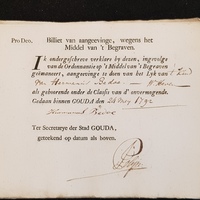 Pro Deo,
Billiet van aangeevinge, wegens het
Middel van 't Begraven.
Ik ondergeschreeve verklare by deezen, ingevolge
van de Ordonnantie op 't Middel van 't Begraven
geëmaneert, aangeevinge te doen van het Lyk van 't kind
van Hermanus
als gehoorende onder de Classis van d' onvermogende.
Gedaan binnen GOUDA den 24 May 1792
Hermanus
Ter Secretarye der Stad GOUDA,
geteekend op datum als boven.